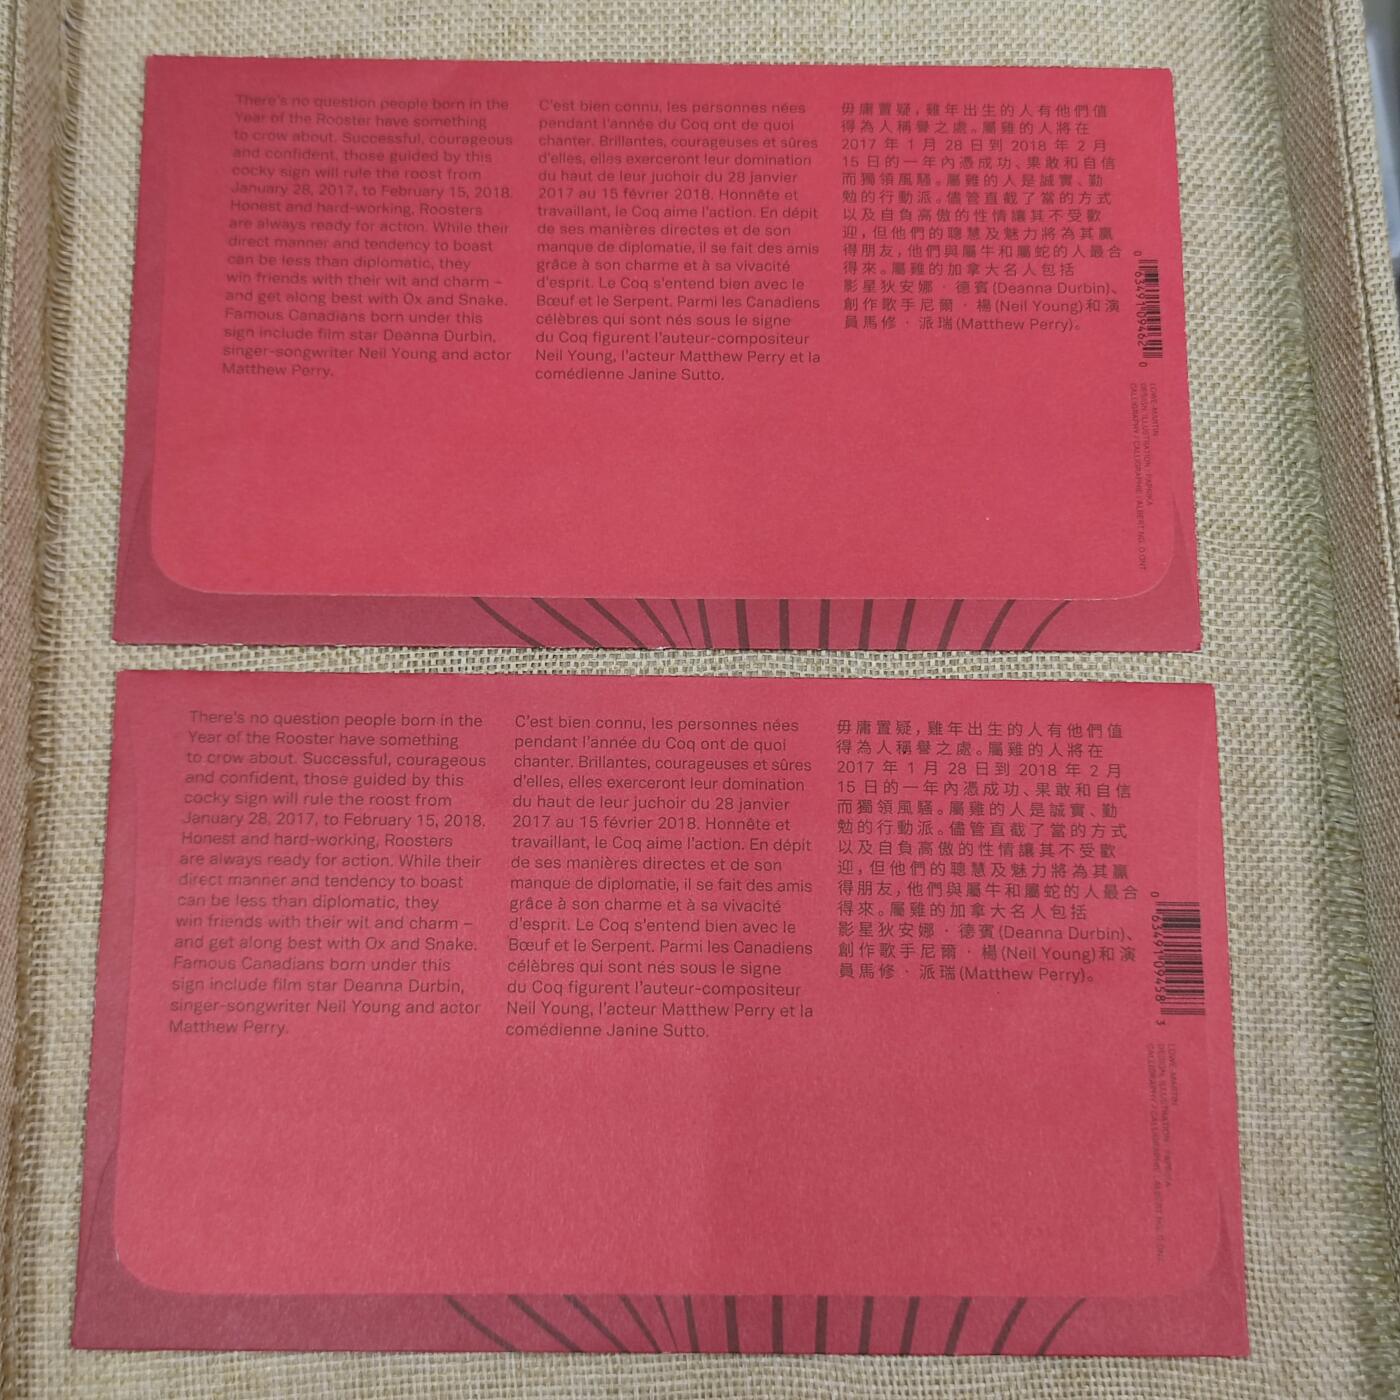 There's no question people born in the
Year of the Rooster have something
to crow about. Successful, courageous
and confident, those guided by this
cocky sign will rule the roost from
January 28, 2017, to February 15, 2018.
Honest and hard-working, Roosters
are always ready for action. While their
direct manner and tendency to boast
can be less than diplomatic, they
win friends with their wit and charm –
and get along best with Ox and Snake.
Famous Canadians born under this
sign include film star Deanna Durbin,
singer-songwriter Neil Young and actor
Matthew Perry.
C'est bien connu, les personnes nées
pendant l'année du Coq ont de quoi
chanter. Brillantes, courageuses et sûres
d'elles, elles exerceront leur domination
du haut de leur juchoir du 28 janvier
2017 au 15 février 2018. Honnête et
travaillant, le Coq aime l'action. En dépit
de ses manières directes et de son
manque de diplomatie, il se fait des amis
grâce à son charme et à sa vivacité
d'esprit. Le Coq s'entend bien avec le
Bœuf et le Serpent. Parmi les Canadiens
célèbres qui sont nés sous le signe
du Coq figurent l'auteur-compositeur
Neil Young, l'acteur Matthew Perry et la
comédienne Janine Sutto.
毋庸置疑，雞年出生的人有他們值
得為人稱譽之處。屬雞的人將在
2017 年 1 月 28 日到 2018 年 2 月
15 日的一年內憑成功、果敢和自信
而獨領風騷。屬雞的人是誠實、勤
勉的行動派。儘管直截了當的方式
以及自負高傲的性情讓其不受歡
迎，但他們的聰慧及魅力將為其贏
得朋友，他們與屬牛和屬蛇的人最合
得來。屬雞的加拿大名人包括
影星狄安娜 · 德賓(Deanna Durbin)、
創作歌手尼爾 · 楊(Neil Young)和演
員馬修 · 派瑞(Matthew Perry)。
0 63491 09462 0
LOWE-MARTIN
DESIGN, ILLUSTRATION : PAPRIKA
CALLIGRAPHY / CALLIGRAPHIE : ALBERT NG, O.ONT.
There's no question people born in the
Year of the Rooster have something
to crow about. Successful, courageous
and confident, those guided by this
cocky sign will rule the roost from
January 28, 2017, to February 15, 2018.
Honest and hard-working, Roosters
are always ready for action. While their
direct manner and tendency to boast
can be less than diplomatic, they
win friends with their wit and charm –
and get along best with Ox and Snake.
Famous Canadians born under this
sign include film star Deanna Durbin,
singer-songwriter Neil Young and actor
Matthew Perry.
C'est bien connu, les personnes nées
pendant l'année du Coq ont de quoi
chanter. Brillantes, courageuses et sûres
d'elles, elles exerceront leur domination
du haut de leur juchoir du 28 janvier
2017 au 15 février 2018. Honnête et
travaillant, le Coq aime l'action. En dépit
de ses manières directes et de son
manque de diplomatie, il se fait des amis
grâce à son charme et à sa vivacité
d'esprit. Le Coq s'entend bien avec le
Bœuf et le Serpent. Parmi les Canadiens
célèbres qui sont nés sous le signe
du Coq figurent l'auteur-compositeur
Neil Young, l'acteur Matthew Perry et la
comédienne Janine Sutto.
毋庸置疑，雞年出生的人有他們值
得為人稱譽之處。屬雞的人將在
2017 年 1 月 28 日到 2018 年 2 月
15 日的一年內憑成功、果敢和自信
而獨領風騷。屬雞的人是誠實、勤
勉的行動派。儘管直截了當的方式
以及自負高傲的性情讓其不受歡
迎，但他們的聰慧及魅力將為其贏
得朋友，他們與屬牛和屬蛇的人最合
得來。屬雞的加拿大名人包括
影星狄安娜 · 德賓(Deanna Durbin)、
創作歌手尼爾 · 楊(Neil Young)和演
員馬修 · 派瑞(Matthew Perry)。
0 63491 09458 3
LOWE-MARTIN
DESIGN, ILLUSTRATION : PAPRIKA
CALLIGRAPHY / CALLIGRAPHIE : ALBERT NG, O.ONT.